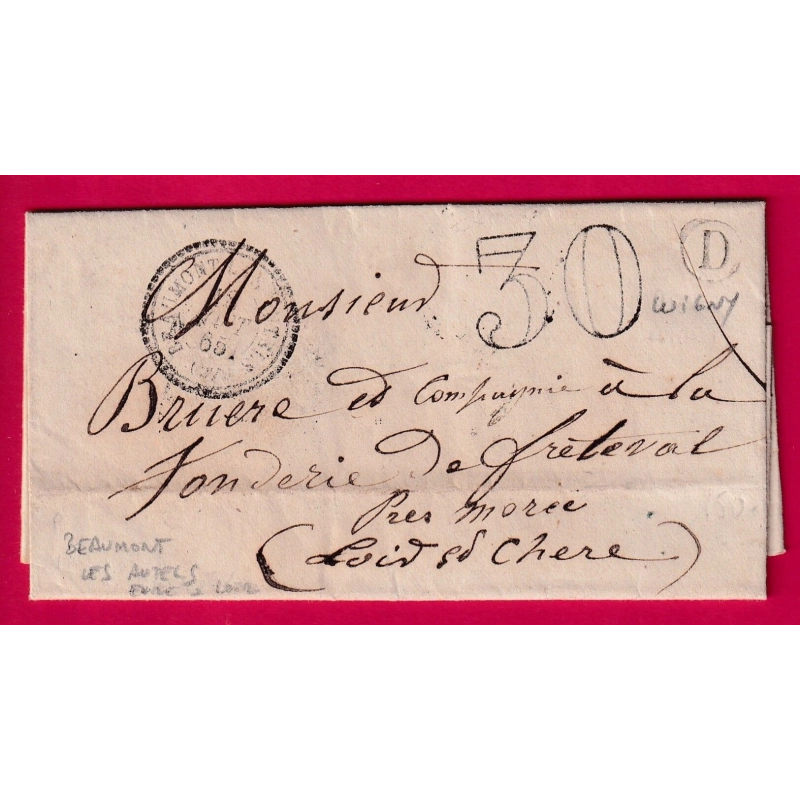 Monsieur
30
D
LUIGNY
BEAUMONT
69
Bruere et Compagnie à la
Fonderie de freteval
Pres moree
(Loir et Chere)
BEAUMONT
LES AUTELS
EURE & LOIR